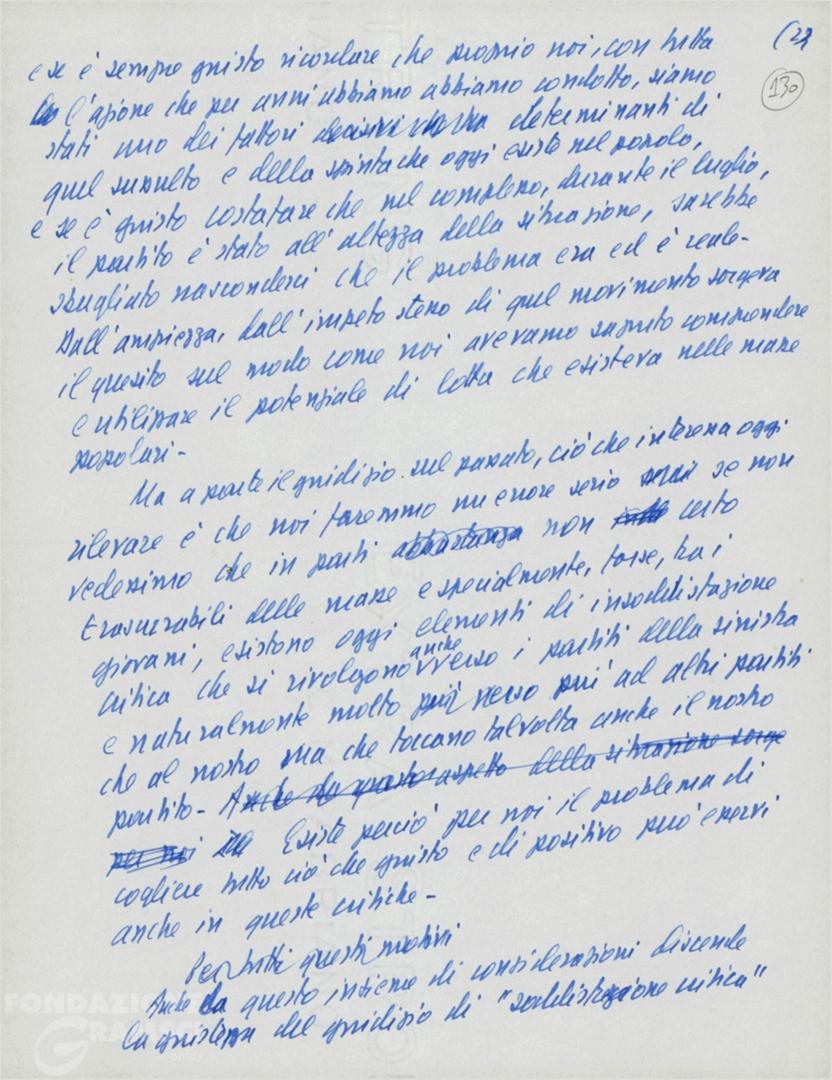 (22
130
e se è sempre giusto ricordare che proprio noi, con tutta
l'azione che per anni abbiamo abbiamo condotto, siamo
stati uno dei fattori determinanti di
quel sussulto e della spinta che oggi esiste nel popolo,
e se è giusto costatare che nel complesso, durante il luglio,
il partito è stato all'altezza della situazione, sarebbe
sbagliato nasconderci che il problema era ed è reale-
Dall'ampiezza, dall'impeto stesso di quel movimento sorgeva
il quesito sul modo come noi avevamo saputo comprendere
e utilizzare il potenziale di lotta che esisteva nelle masse
popolari-
Ma a parte il giudizio sul passato, ciò che interessa oggi
rilevare è che noi faremmo un errore serio se non
vedessimo che in parti abbastanza non certo
trascurabili delle masse e specialmente, forse, tra i
giovani, esistono oggi elementi di insoddisfazione
critica che si rivolgono anche verso i partiti della sinistra
e naturalmente molto più verso più ad altri partiti
che al nostro ma che toccano talvolta anche il nostro
partito- Anche da questo aspetto della situazione sorge
per noi Esiste perciò per noi il problema di
cogliere tutto ciò che giusto e di positivo può esservi
anche in queste critiche-
Per tutti questi motivi
Anche da questo insieme di considerazioni discende
la giustezza del giudizio di "soddisfazione critica"
FONDAZIONE
GRAMSCI